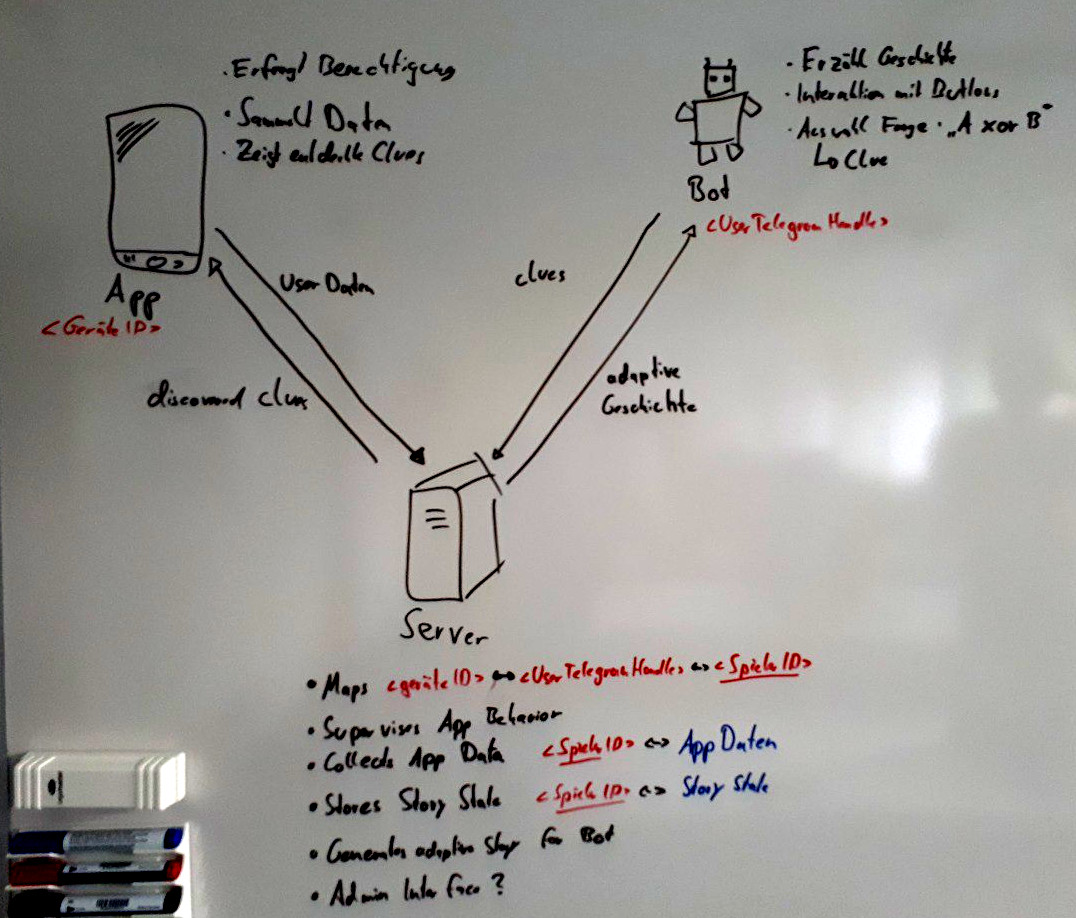 · Erfragt Berechtigung
· Sammelt Data
· Zeigt entdeckte Clues
App
<Geräte ID>
· Erzählt Geschichte
· Interaktion mit Buttons
· Auswahl Frage · „A xor B"
↳ Clue
Bot
<User Telegram Handle>
User Daten
discovered clues
clues
adaptive
Geschichte
Server
• Maps <geräte ID> ↔ <User Telegram Handle> ↔ <Spiele ID>
• Supervises App Behavior
• Collects App Data <Spiele ID> ↔ App Daten
• Stores Story State <Spiele ID> ↔ Story State
• Generates adaptive Story for Bot
• Admin Interface?